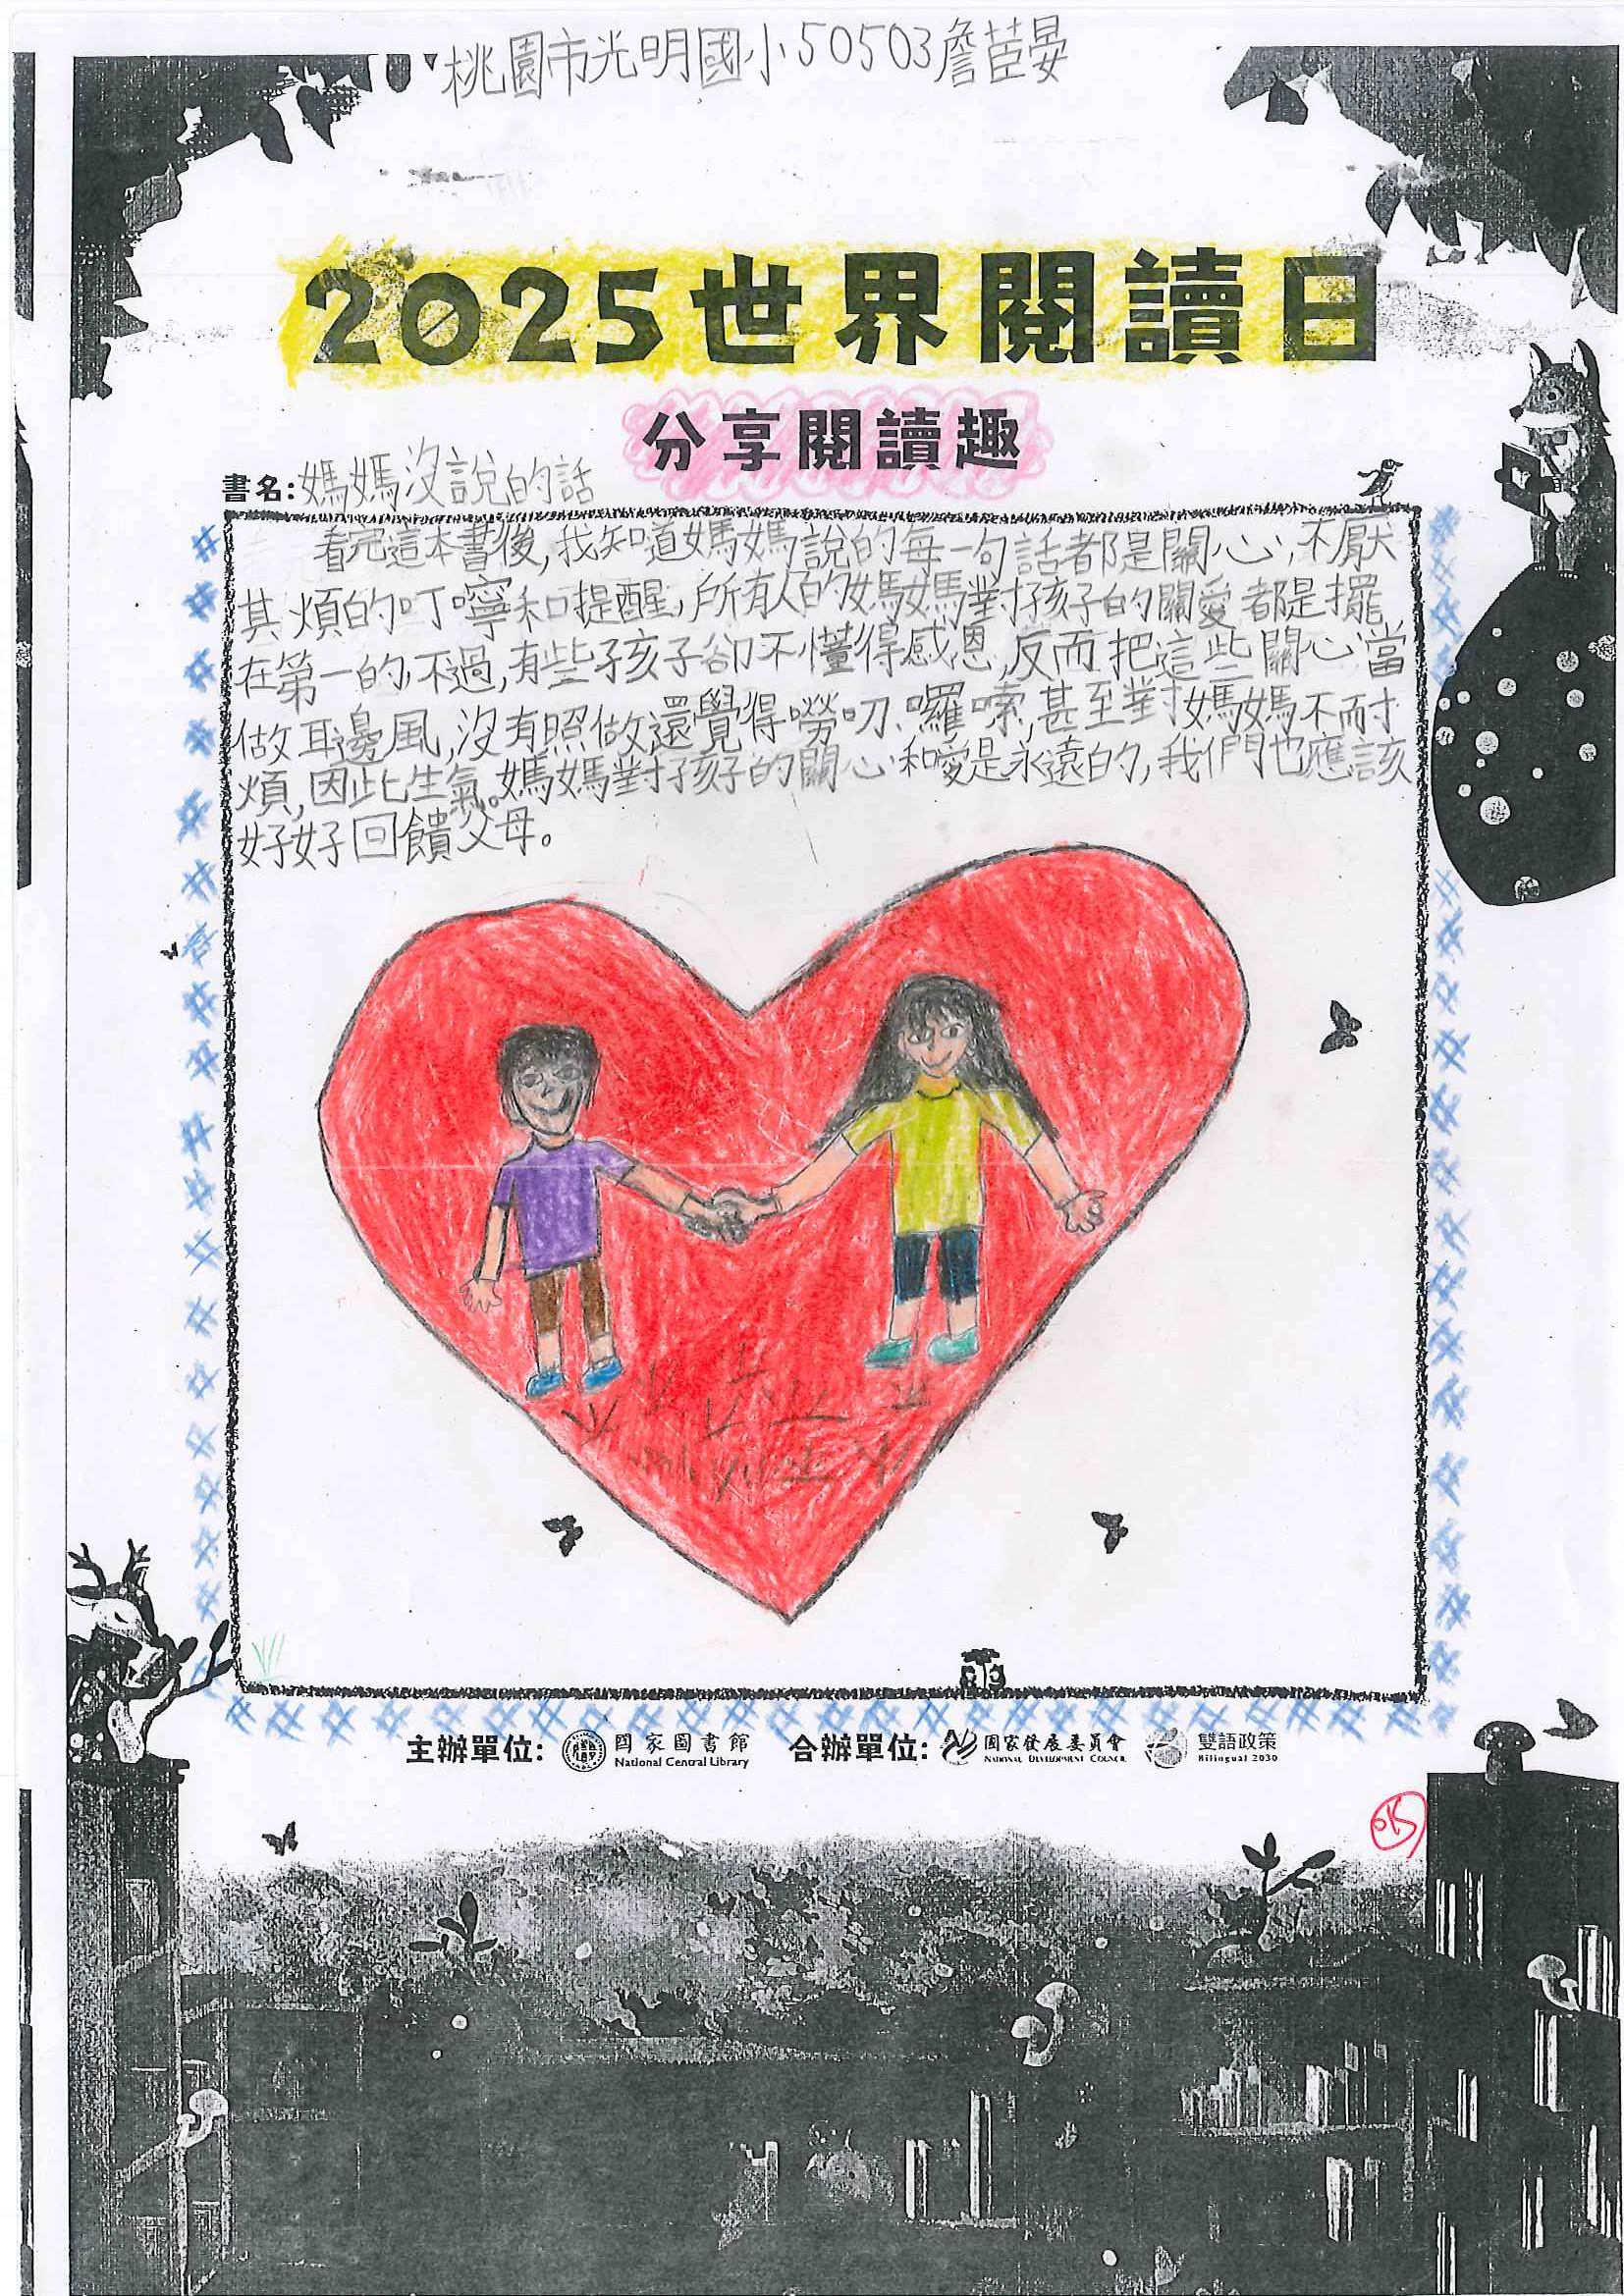 桃園市光明國小50503詹茝晏
2025世界閱讀日
分享閱讀趣
書名:媽媽沒說的話
看完這本書後,我知道媽媽說的每一句話都是關心,不厭
其煩的叮嚀和提醒,所有人的媽媽對孩子的關愛都是擺
在第一的,不過,有些孩子卻不懂得感恩,反而把這些關心當
做耳邊風,沒有照做還覺得嘮叨、囉嗦,甚至對媽媽不耐
煩,因此生氣。媽媽對孩子的關心和愛是永遠的,我們也應該
好好回饋父母。
主辦單位: 國家圖書館 合辦單位: 國家發展委員會 雙語政策
National Central Library NATIONAL DEVELOPMENT COUNCIL Bilingual 2030